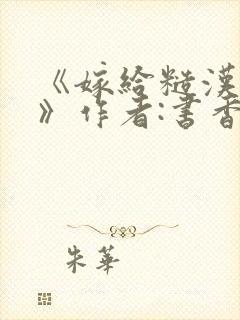 《嫁给糙汉
》作者:书香
朱华